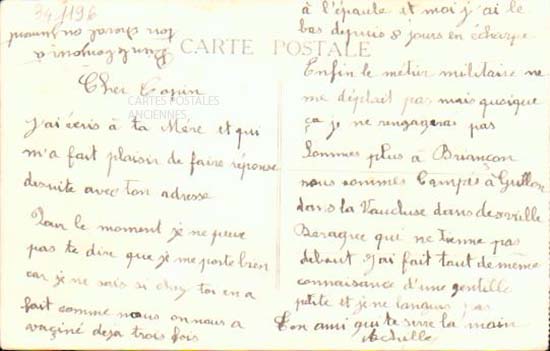 34/196
CARTE POSTALE
CARTES POSTALES
ANCIENNES
Cher Copin
J'ai écris à ta Mère et qui
m'a fait plaisir de faire réponse
desuite avec ton adresse
Pour le moment je ne peux
pas te dire que je me porte bien
car je ne sais si chez toi on a
fait comme nous on nous a
vaciné deja trois fois
à l'épaule et moi j'ai le
bas depuis 8 jours en écharpe
Enfin le métier militaire ne
me déplait pas mais quoique
ça je ne rengagerai pas
Sommes plus à Briançon
nous sommes Campés à Guillon
dans la Vaucluse dans des vieille
Baraque qui ne tienne pas
debout. J'ai fait tout de même
connaissance d'une gentille
petite et je ne languis pas
Ton ami qui te serre la main
Achille